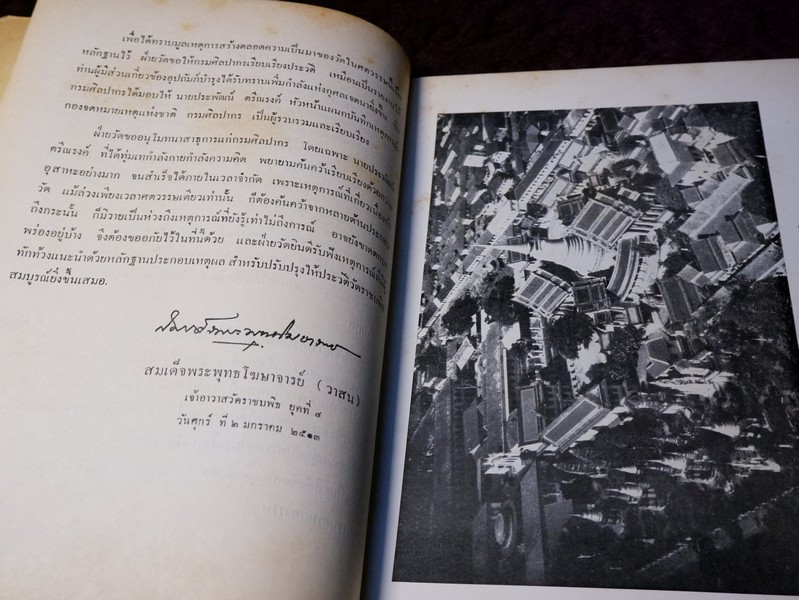 เพื่อได้ทราบมูลเหตุการสร้างตลอดความเป็นมาของวัดในศตวรรษ
หลักฐานไว้ ฝ่ายวัดขอให้กรมศิลปากรเรียบเรียงประวัติ เหมือนเป็นรายงาน
ท่านผู้มีส่วนเกี่ยวข้องอุปถัมภ์บำรุงได้รับทราบเพิ่มกำลังแห่งกุศลเจตนายิ่งขึ้น
กรมศิลปากรได้มอบให้ นายประพัฒน์ ตรีณรงค์ หัวหน้าแผนกบันทึกเหตุการณ์
กองจดหมายเหตุแห่งชาติ กรมศิลปากร เป็นผู้รวบรวมและเรียบเรียง
ฝ่ายวัดขออนุโมทนาสาธุการแก่กรมศิลปากร โดยเฉพาะ นายประพัฒน์
ตรีณรงค์ ที่ได้ทุ่มเทกำลังกายกำลังความคิด พยายามค้นคว้าเรียบเรียงด้วยความ
อุสาหะอย่างมาก จนสำเร็จได้ภายในเวลาจำกัด เพราะเหตุการณ์ที่เกี่ยวเนื่อง
วัด แม้ล่วงเพียงเวลาศตวรรษเดียวเท่านั้น ก็ต้องค้นคว้าจากหลายด้าน
ถึงกระนั้น ก็มิวายเป็นห่วงถึงเหตุการณ์ที่ยังรู้เท่าไม่ถึงการณ์ อาจยังขาดตก
พร่องอยู่บ้าง จึงต้องขออภัยไว้ในที่นี้ด้วย และฝ่ายวัดยินดีรับฟังเหตุการณ์
ทักท้วงแนะนำด้วยหลักฐานประกอบเหตุผล สำหรับปรับปรุงให้ประวัติวัดราชบพิธ
สมบูรณ์ยิ่งขึ้นเสมอ.
สมเด็จพระพุทธโฆษาจารย์ (วาสน)
เจ้าอาวาสวัดราชบพิธ ยุคที่ ๔
วันศุกร์ ที่ ๒ มกราคม ๒๕๑๓